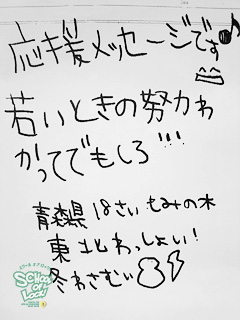 応援メッセージです♪
若いときの努力わ
かってでもしろ!!!
青森県 18さい もみの木
東北わっしょい!
冬わさむい
SCHOOL OF LOCK!